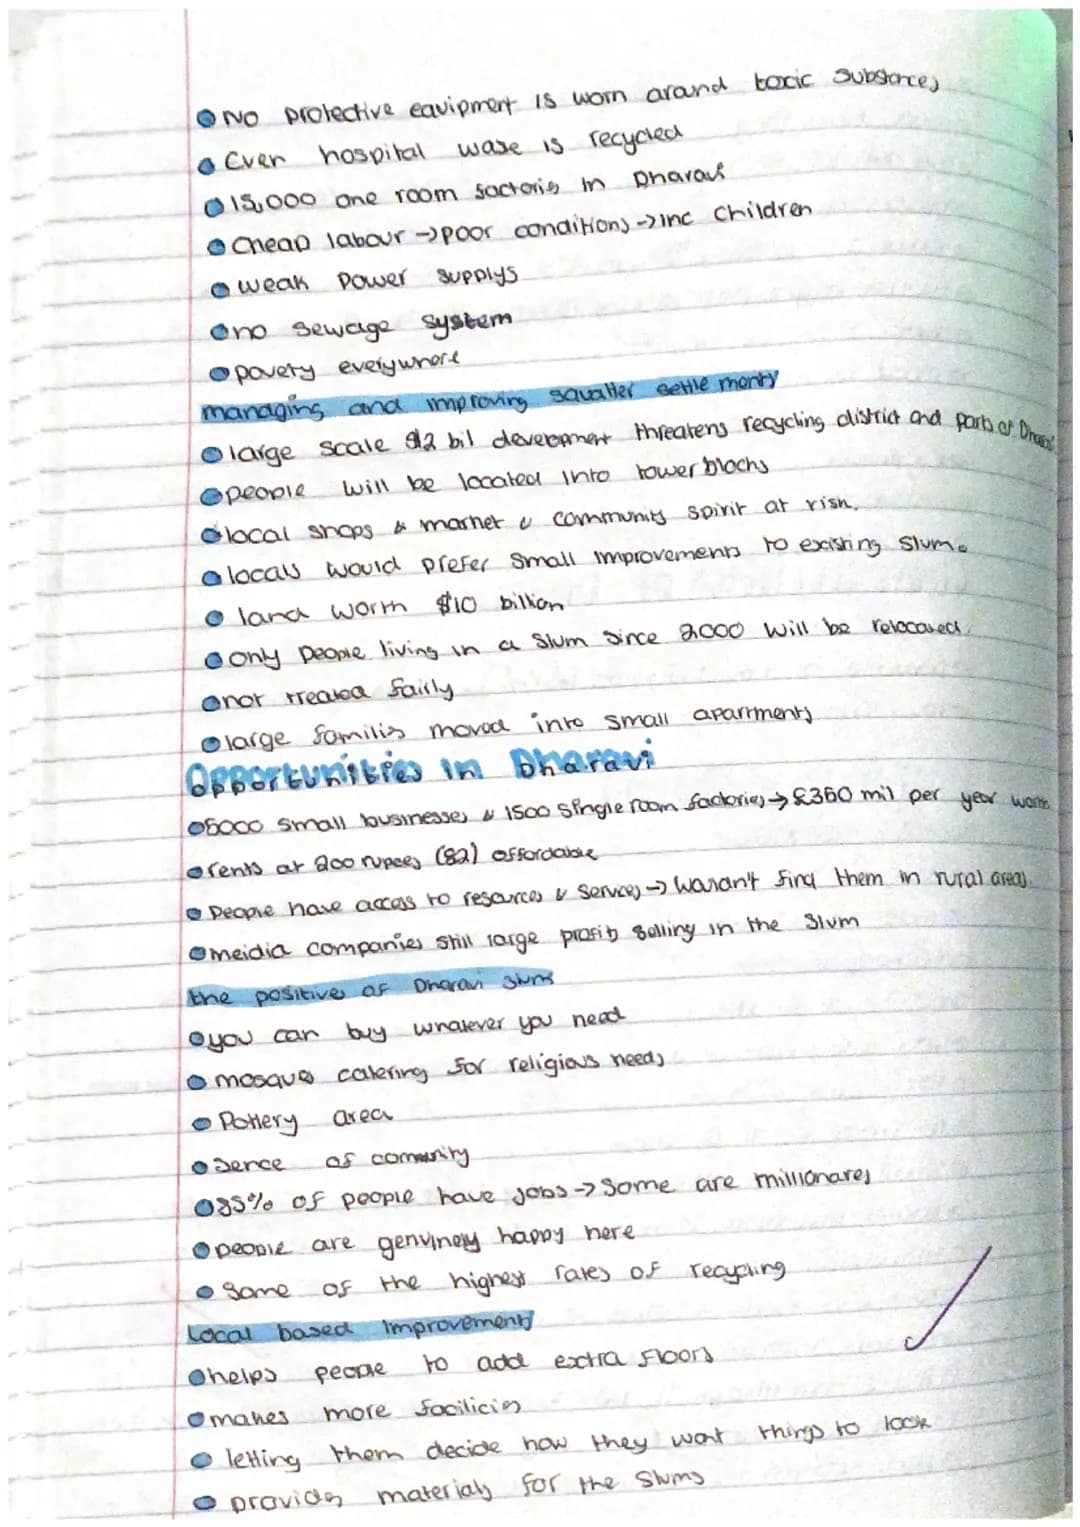 ● No protective equipment is worn around toxic substances
● Even hospital wase is recycled
● 15,000 one room factories in Dharavi
● Cheap labour → poor conditions → inc children
● weak power supplys
● no sewage system
● povety everywhere
managing and improving squatter settle ments
● large scale $2 bil development threatens recycling district and parts of Dharavi
● people will be located into tower blocks
● local shops & market & community spirit at risk.
● locals would prefer small improvements to existing slum.
● land worth $10 billion
● only people living in a slum since 2000 will be relocated.
● not treated fairly
● large familis moved into small apartments
Opportunities in Dharavi
● 5000 small businesses & 1500 single room factories → £350 mil per year worth
● rents at 200 rupees (82) affordable
● People have access to resources & services → wouldn't find them in rural areas.
● meidia companies still large profits selling in the slum
the positives of Dharavi slums
● you can buy whatever you need
● mosques catering for religious needs
● Pottery area
● sence of community
● 85% of people have jobs → some are millionares
● people are genuinely happy here
● Some of the highest rates of recycling
Local based improvements
● helps people to add extra floors
● makes more facilicis
● letting them decide how they want things to look
● provides materials for the slums